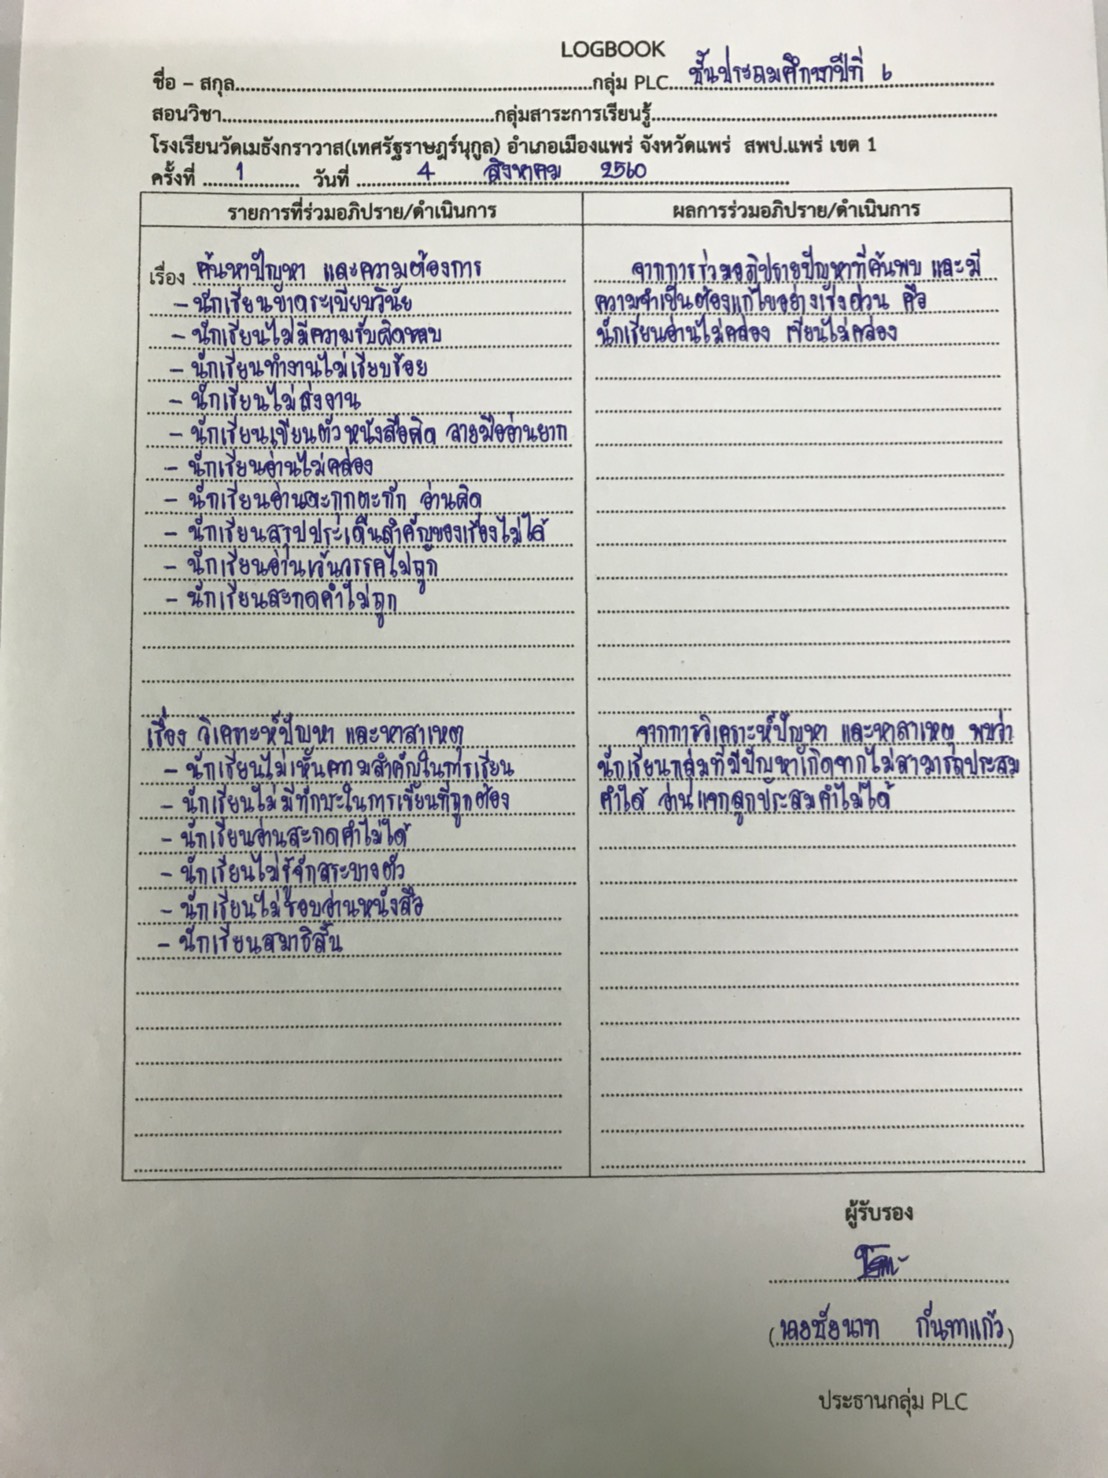 LOGBOOK
ชื่อ – สกุล..........กลุ่ม PLC.....ชั้นประถมศึกษาปีที่ ๖
สอนวิชา..........กลุ่มสาระการเรียนรู้..........
โรงเรียนวัดเมธังกราวาส(เทศรัฐราษฎร์นุกูล) อำเภอเมืองแพร่ จังหวัดแพร่ สพป.แพร่ เขต 1
ครั้งที่ 1 วันที่ 4 สิงหาคม 2560
รายการที่ร่วมอภิปราย/ดำเนินการ
เรื่อง ค้นหาปัญหา และความต้องการ
- นักเรียนขาดระเบียบวินัย
- นักเรียนไม่มีความรับผิดชอบ
- นักเรียนทำงานไม่เรียบร้อย
- นักเรียนไม่ส่งงาน
- นักเรียนเขียนตัวหนังสือผิด ลายมืออ่านยาก
- นักเรียนอ่านไม่คล่อง
- นักเรียนอ่านตะกุกตะกัก อ่านผิด
- นักเรียนสรุปประเด็นสำคัญของเรื่องไม่ได้
- นักเรียนอ่านเว้นวรรคไม่ถูก
- นักเรียนสะกดคำไม่ถูก
เรื่อง วิเคราะห์ปัญหา และหาสาเหตุ
- นักเรียนไม่เห็นความสำคัญในการเรียน
- นักเรียนไม่มีทักษะในการเขียนที่ถูกต้อง
- นักเรียนอ่านสะกดคำไม่ได้
- นักเรียนไม่รู้จักสระบางตัว
- นักเรียนไม่ชอบอ่านหนังสือ
- นักเรียนสมาธิสั้น
ผลการร่วมอภิปราย/ดำเนินการ
จากการร่วมอภิปรายปัญหาที่ค้นพบ และมี
ความจำเป็นต้องแก้ไขอย่างเร่งด่วน คือ
นักเรียนอ่านไม่คล่อง เขียนไม่คล่อง
จากการวิเคราะห์ปัญหา และหาสาเหตุ พบว่า
นักเรียนกลุ่มที่มีปัญหาเกิดจากไม่สามารถประสม
คำได้ อ่านแจกลูกประสมคำไม่ได้
ผู้รับรอง
(นายชัยนาท กันทาแก้ว)
ประธานกลุ่ม PLC